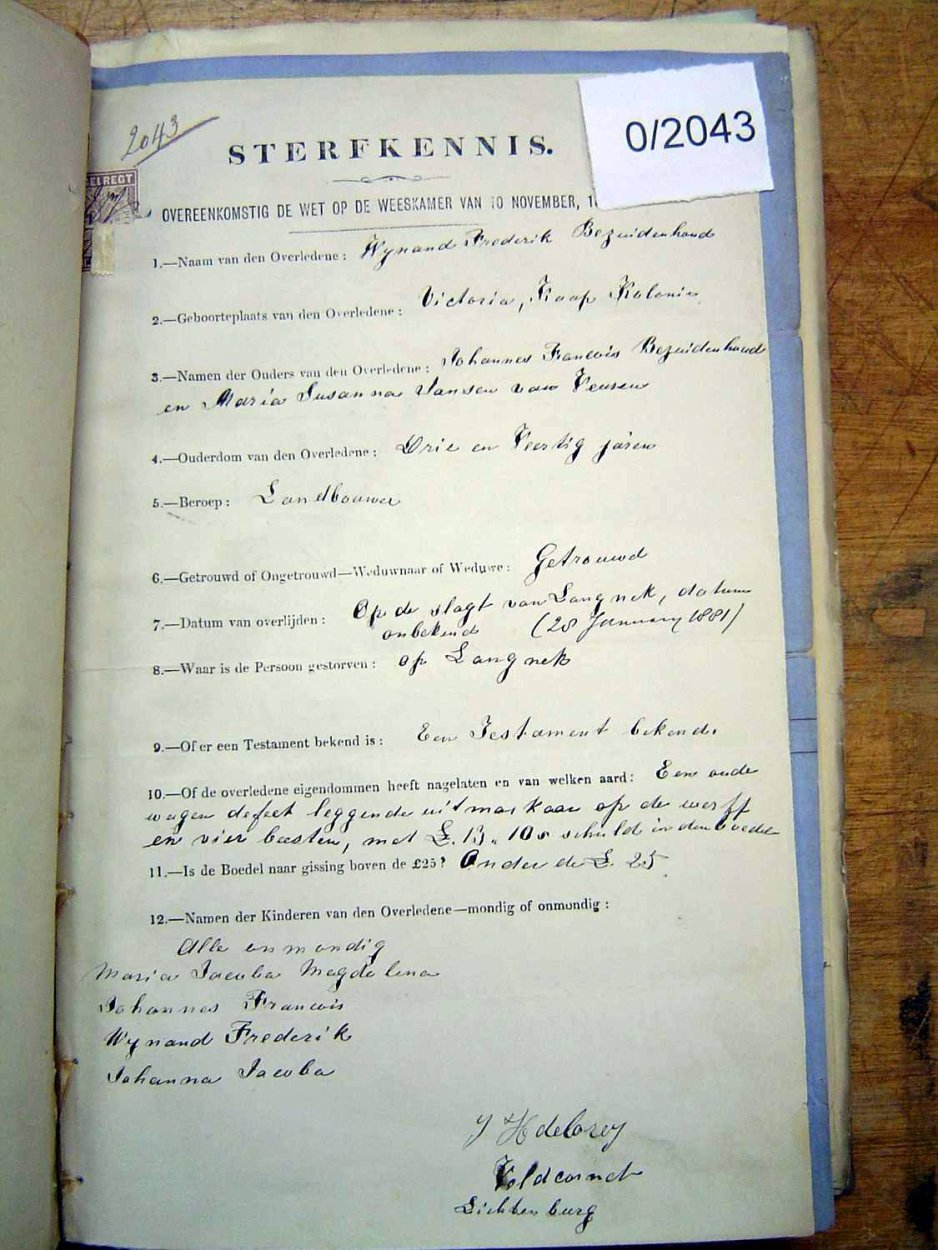 2043
0/2043
ELREGT
STERFKENNIS.
OVEREENKOMSTIG DE WET OP DE WEESKAMER VAN 10 NOVEMBER, 1
1.—Naam van den Overledene: Wynand Frederik Bezuidenhoud
2.—Geboorteplaats van den Overledene: Victoria, Kaap Kolonie
3.—Namen der Ouders van den Overledene: Johannes Francois Bezuidenhoud
en Maria Susanna Jansen van Veuren
4.—Ouderdom van den Overledene: Drie en Veertig jaren
5.—Beroep: Landbouwer
6.—Getrouwd of Ongetrouwd—Weduwnaar of Weduwe: Getrouwd
7.—Datum van overlijden: Op de slagt van Langnek, datum
onbekend (28 January 1881)
8.—Waar is de Persoon gestorven: op Langnek
9.—Of er een Testament bekend is: Een Testament bekend.
10.—Of de overledene eigendommen heeft nagelaten en van welken aard: Een oude
wagen defect leggende uit markaar op de werff
en vier beesten, met £.13. 10s schuld in den boedel
11.—Is de Boedel naar gissing boven de £25? Onder de £. 25
12.—Namen der Kinderen van den Overledene—mondig of onmondig:
Alle onmondig
Maria Jacoba Magdalena
Johannes Francois
Wynand Frederik
Johanna Jacoba
J H de
Veldcornet
Lichtenburg